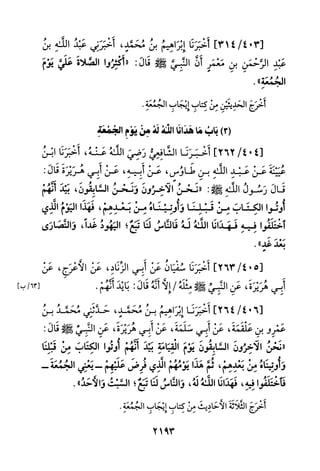 [٣١٤/٤٠٣] أَخْبَرَنَا إِبْرَاهِيمُ بنُ مُحَمَّدٍ، أَخْبَرَنِي عَبْدُ اللَّهِ بنُ
عَبْدِ الرَّحْمَنِ بنِ مَعْمَرٍ أَنَّ النَّبِيَّ ﷺ قَالَ: «أَكْثِرُوا الصَّلاةَ عَلَيَّ يَوْمَ
الجُمُعَةِ».
أَخْرَجَ الحَدِيثَيْنِ مِنْ كِتَابِ إِيجَابِ الجُمُعَةِ.
(٣) بَابُ مَا هَدَانَا اللَّهُ لَهُ مِنْ يَوْمِ الجُمُعَةِ
[٢٦٢/٤٠٤] أَخْبَرَنَا الشَّافِعِيُّ رَضِيَ اللَّهُ عَنْهُ، أَخْبَرَنَا ابْنُ
عُيَيْنَةَ عَنْ عَبْدِ اللَّهِ بنِ طَاوُسٍ، عَنْ أَبِيهِ، عَنْ أَبِي هُرَيْرَةَ قَالَ:
قَالَ رَسُولُ اللَّهِ ﷺ: «نَحْنُ الآخِرُونَ وَنَحْنُ السَّابِقُونَ، بَيْدَ أَنَّهُمْ
أُوتُوا الكِتَابَ مِنْ قَبْلِنَا وَأُوتِينَاهُ مِنْ بَعْدِهِمْ، فَهَذَا اليَوْمُ الَّذِي
اخْتَلَفُوا فِيهِ فَهَدَانَا اللَّهُ لَهُ فَالنَّاسُ لَنَا تَبَعٌ؛ اليَهُودُ غَداً، وَالنَّصَارَى
بَعْدَ غَدٍ».
[٢٦٣/٤٠٥] أَخْبَرَنَا سُفْيَانُ عَنْ أَبِي الزِّنَادِ، عَنْ الأَعْرَجِ، عَنْ
أَبِي هُرَيْرَةَ، عَنِ النَّبِيِّ ﷺ مِثْلُهُ/ إِلاَّ أَنَّهُ قَالَ: بَايْدَ أَنَّهُمْ. [٦٣/ب]
[٢٦٤/٤٠٦] أَخْبَرَنَا إِبْرَاهِيمُ بنُ مُحَمَّدٍ، حَدَّثَنِي مُحَمَّدُ بنُ
عَمْرٍو بنِ عَلْقَمَةَ، عَنْ أَبِي سَلَمَةَ، عَنْ أَبِي هُرَيْرَةَ، عَنِ النَّبِيِّ ﷺ قَالَ:
«نَحْنُ الآخِرُونَ السَّابِقُونَ يَوْمَ القِيَامَةِ بَيْدَ أَنَّهُمْ أُوتُوا الكِتَابَ مِنْ قَبْلِنَا
وَأُوتِينَاهُ مِنْ بَعْدِهِمْ، ثُمَّ هَذَا يَوْمُهُمُ الَّذِي فُرِضَ عَلَيْهِمْ ـ يَعْنِي الجُمُعَةَ ـ
فَاخْتَلَفُوا فِيهِ، فَهَدَانَا اللَّهُ لَهُ، وَالنَّاسُ لَنَا تَبَعٌ؛ السَّبْتُ وَالأَحَدُ».
أَخْرَجَ الثَّلاَثَةَ الأَحَادِيثَ مِنْ كِتَابِ إِيجَابِ الجُمُعَةِ.
٢١٩٣